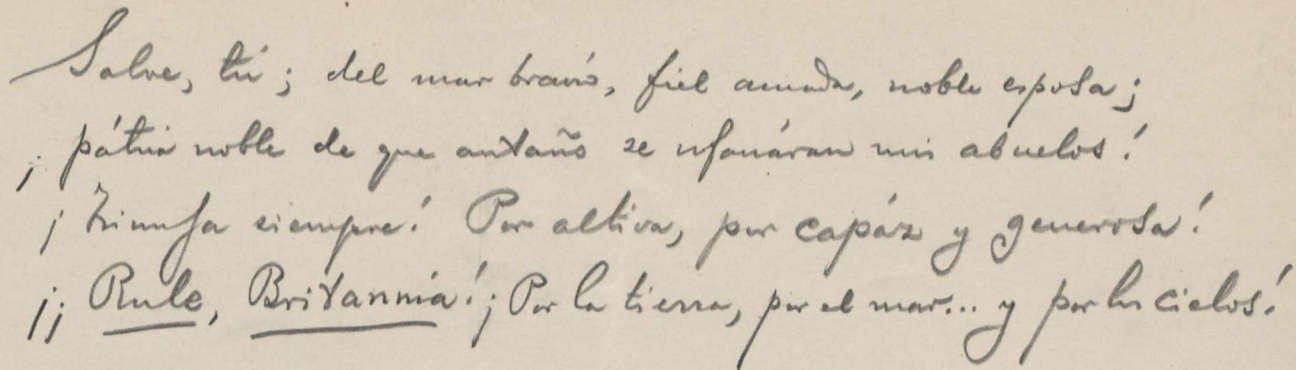 Salve, tú; del mar bravío, fiel amada, noble esposa;
¡pátria noble de que antaño se ufanáran mis abuelos!
¡Triunfa siempre! Por altiva, por capáz y generosa!
¡¡Rule, Britannia!; Por la tierra, por el mar... y por los cielos!